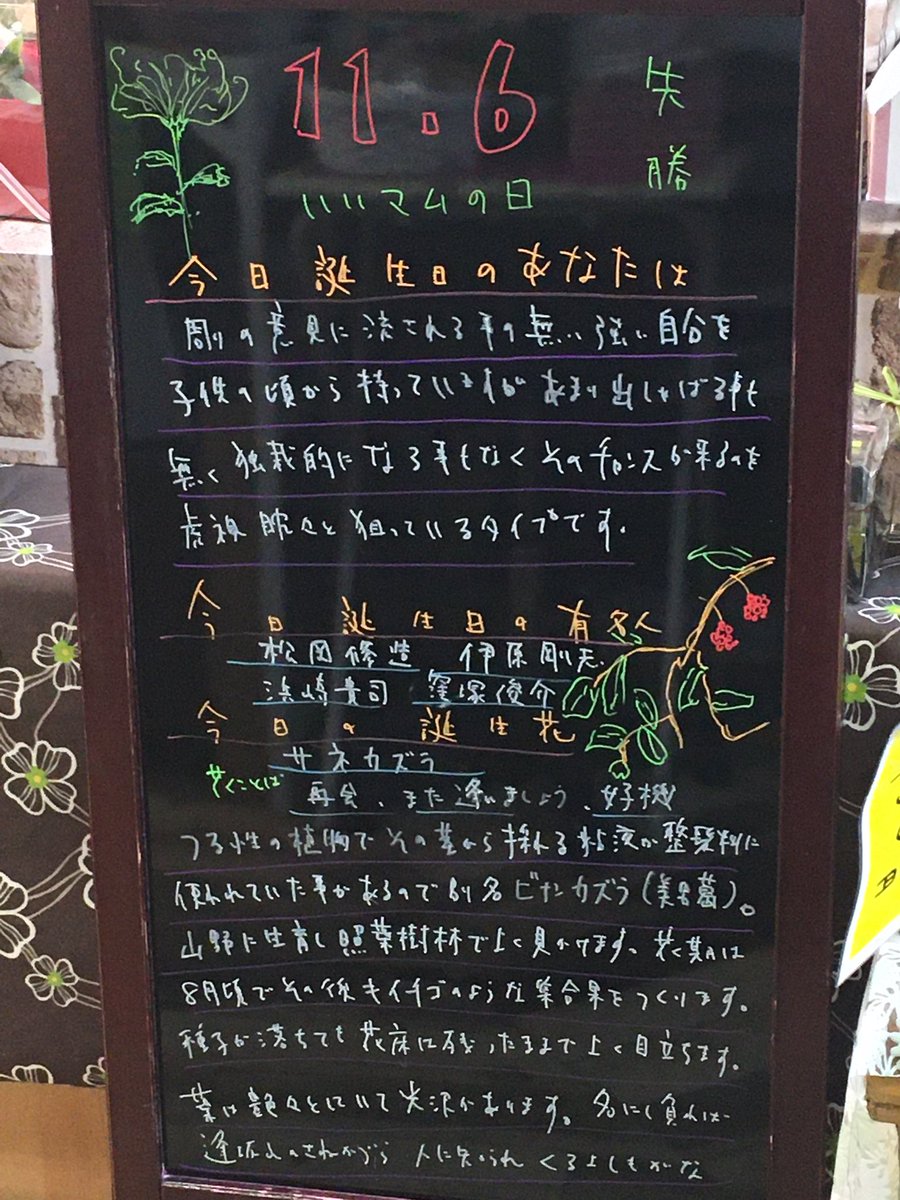 11.6
先勝
いいマムの日
今日誕生日のあなたは
周りの意見に流される事の無い強い自分を
子供の頃から持っていますがあまり出しゃばる事も
無く独裁的になる事もなくそのチャンスが来るのを
虎視眈々と狙っているタイプです。
今日誕生日の有名人
松岡修造 伊原剛志
浜崎貴司 窪塚俊介
今日の誕生花
サネカズラ
花ことば
再会、また逢いましょう、好機
つる性の植物でその茎から採れる粘液が整髪料に
使われていた事があるので別名ビナンカズラ(美男葛)。
山野に生育し照葉樹林で上く見かけます。花期は
8月頃でその後キイチゴのような集合果をつくります。
種子が落ちても花床は残ったままで上く目立ちます。
葉は艶々としいて光沢があります。名にし負はば
逢坂山のさねかずら 人に知られ くるよしもがな